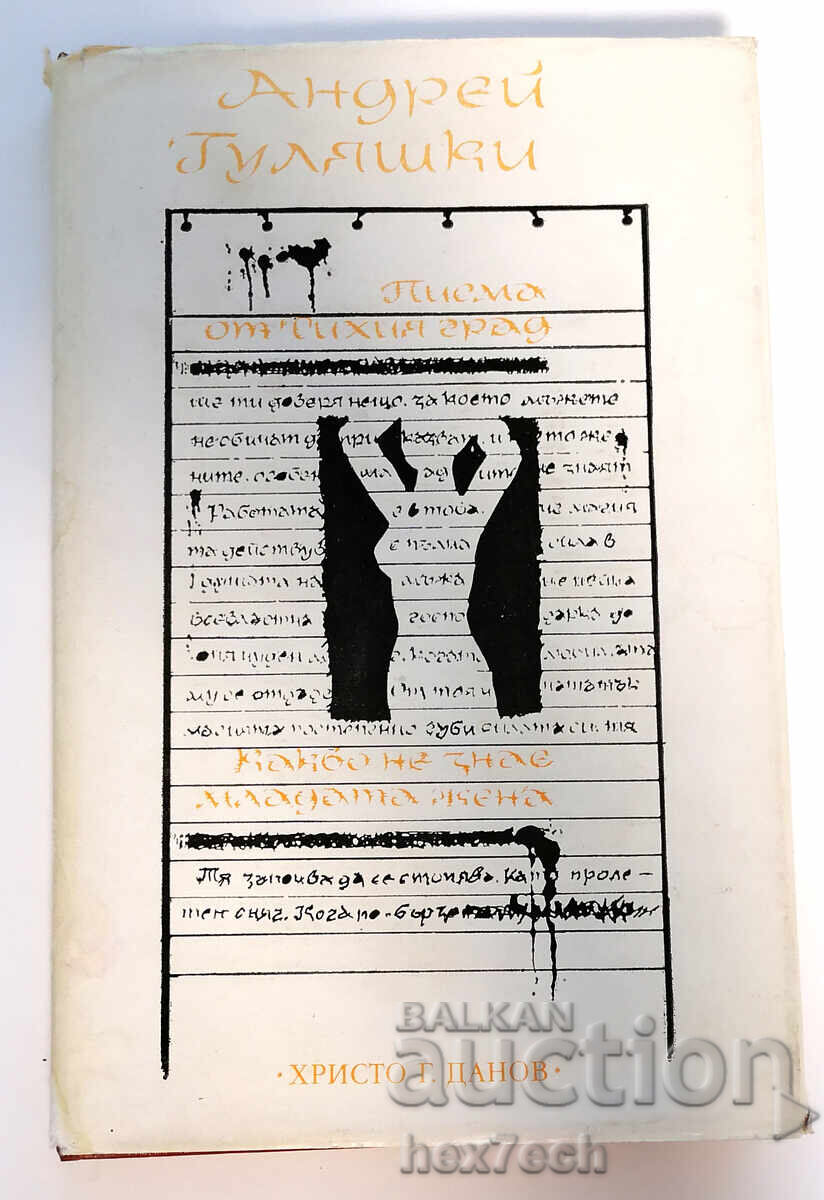 Андрей
Гуляшки
Писма
от Тихия град
ще ти доверя нещо, за което мъжете
не обичат да при казват, и което же
ните, особен мла ите не знаят
Работата е в това, че магия
та действув с пълна сила в
душата на мъжа
всевластна госпо дарка до
му се отдаде
магията постепенно губи силата си. тя
Какво не знае
младата жена
Тя започва да се стопява, като проле-
тен сняг. Кога по-бърз
· ХРИСТО Г. ДАНОВ ·
BALKAN
auction
hex7ech